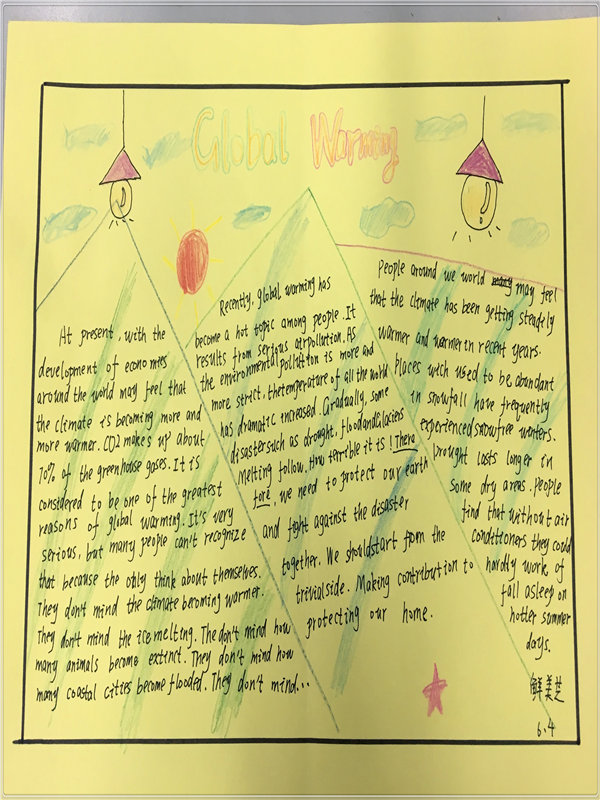 Global Warming
At present, with the
development of economies
around the world may feel that
the climate is becoming more and
more warmer. CO2 makes up about
70% of the greenhouse gases. It is
considered to be one of the greatest
reasons of global warming. It's very
serious, but many people can't recognize
that because the only think about themselves.
They don't mind the climate becoming warmer.
They don't mind the ice melting. The don't mind how
many animals become extinct. They don't mind how
many coastal cities become flooded. They don't mind...
Recently, global warming has
become a hot topic among people. It
results from serious airpollution. As
the environmental pollution is more and
more strict, the temperature of all the world
has dramatic increased. Gradually, some
disaster such as drought, flood and Glaciers
Melting follow. How terrible it is! There
fore, we need to protect our earth
and fight against the disaster
together. We should start from the
trivial side. Making contribution to
protecting our home.
People around we world may feel
that the climate has been getting steadely
warmer and warmer in recent years.
places wich used to be abundant
in snowfall have frequently
experienced snowfree winters.
Drought lasts longer in
some dry areas. People
find that without air
conditioners they could
hardly work, of
fall asleep on
hotler summer
days.
鲜美芝
6.4